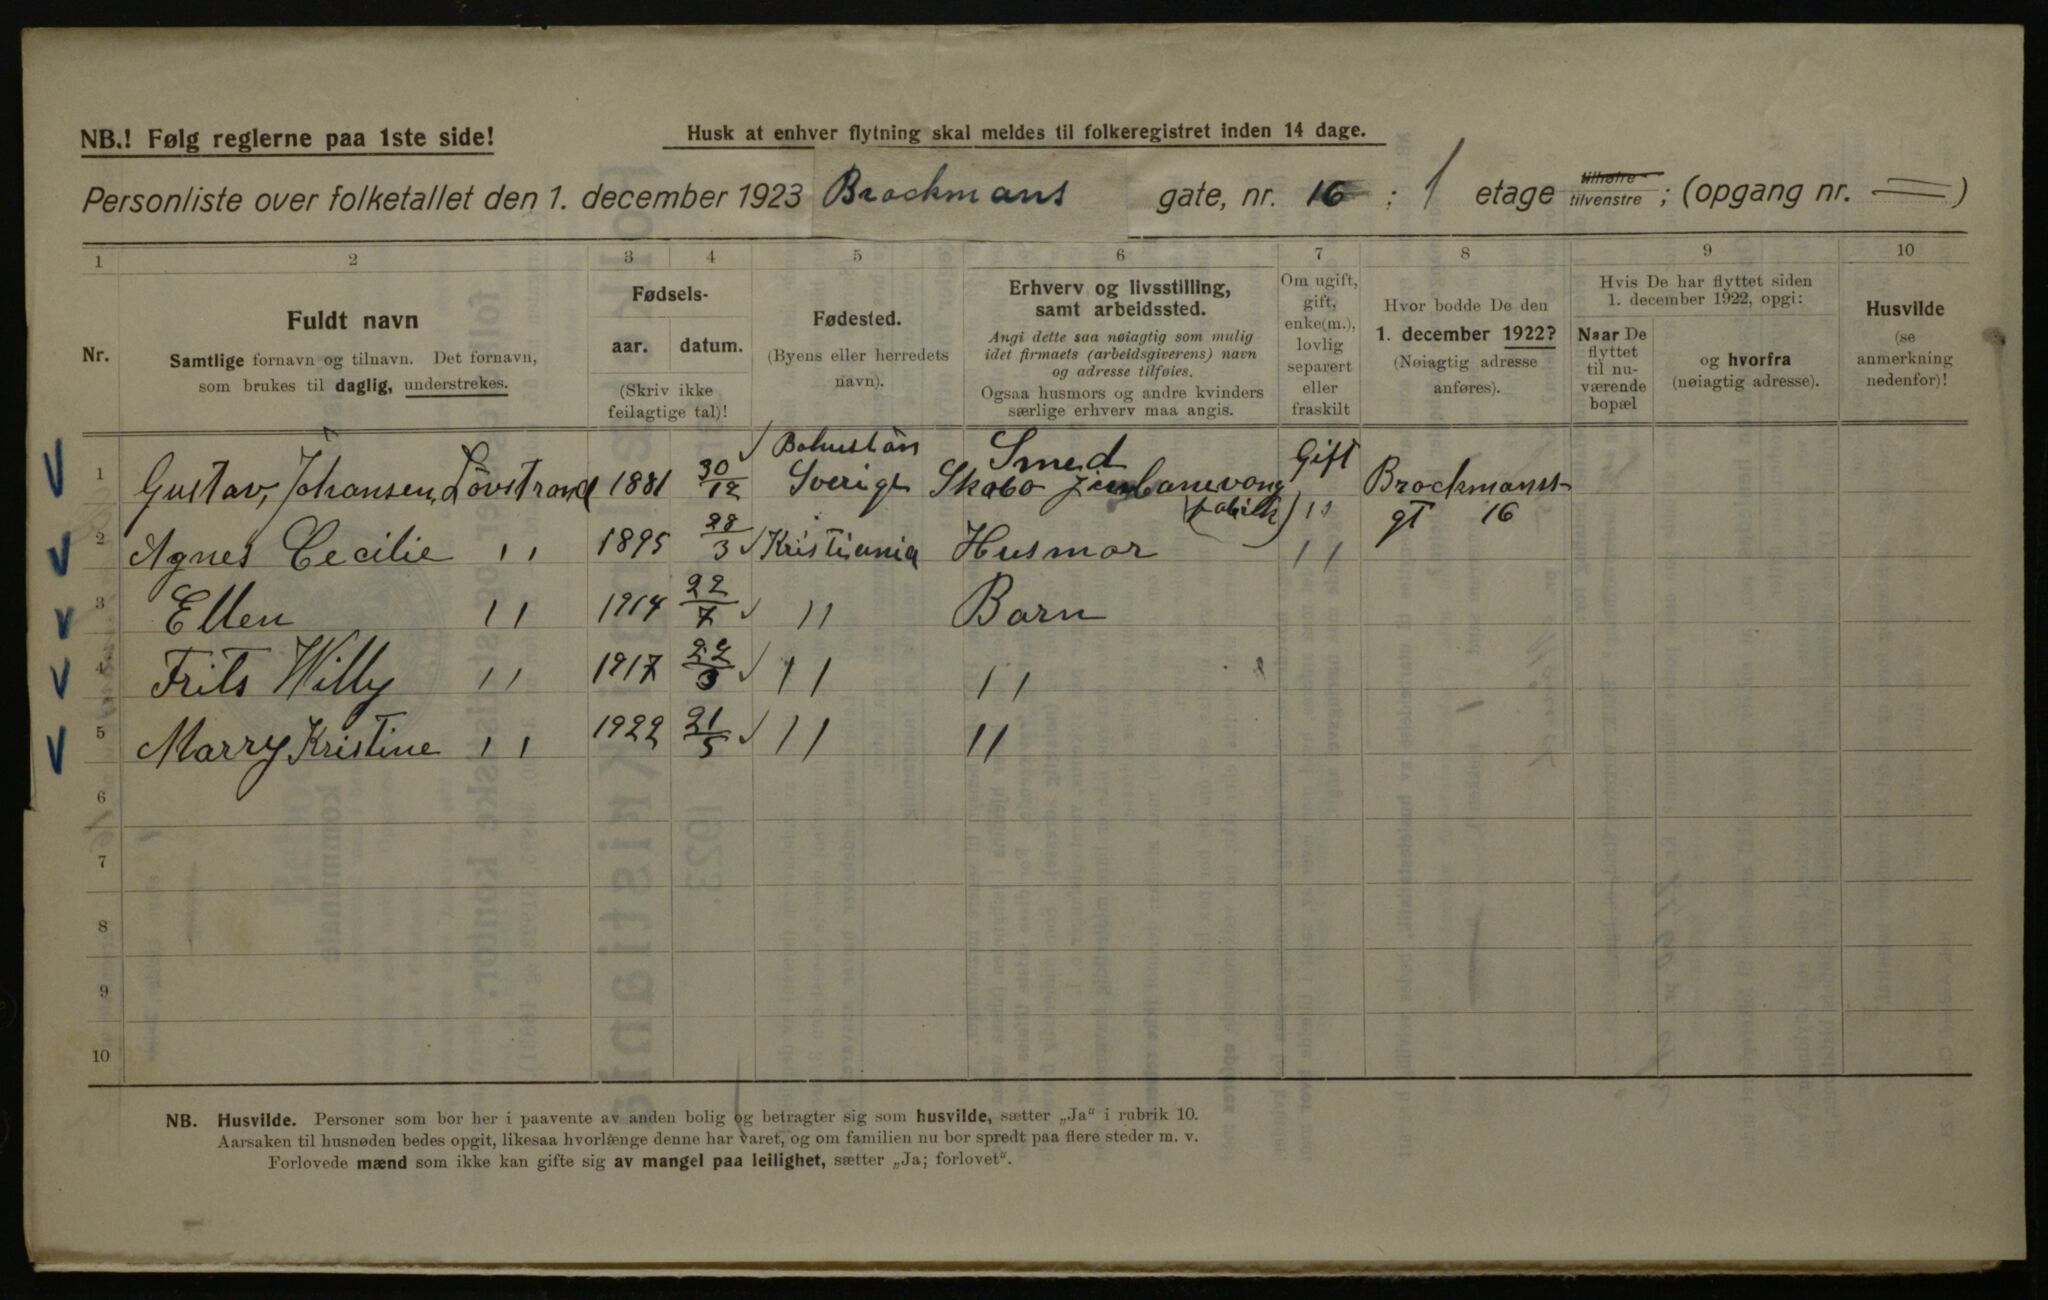 NB.! Følg reglerne paa 1ste side!
Husk at enhver flytning skal meldes til folkeregistret inden 14 dage.
Personliste over folketallet den 1. december 1923 Brockmans gate, nr. 16 ; 1 etage tilhøire tilvenstre ; (opgang nr. — )
1 2 3 4 5 6 7 8 9 10
Nr.
Fuldt navn
Samtlige fornavn og tilnavn. Det fornavn,
som brukes til daglig, understrekes.
Fødsels-
aar. datum.
(Skriv ikke
feilagtige tal)!
Fødested.
(Byens eller herredets
navn).
Erhverv og livsstilling,
samt arbeidssted.
Angi dette saa nøiagtig som mulig
idet firmaets (arbeidsgiverens) navn
og adresse tilføies.
Ogsaa husmors og andre kvinders
særlige erhverv maa angis.
Om ugift,
gift,
enke(m.),
lovlig
separert
eller
fraskilt
Hvor bodde De den
1. december 1922?
(Nøiagtig adresse
anføres).
Hvis De har flyttet siden
1. december 1922, opgi:
Naar De
flyttet
til nu-
værende
bopæl
og hvorfra
(nøiagtig adresse).
Husvilde
(se
anmerkning
nedenfor)!
Bohuslän Smed Gift
1 Gustav, Johansen, Lövstrand 1881 30/12 Sverige Skabo Brockmanss-
gt 16
2 Agnes Cecilie " 1895 28/3 Kristiania Husmor "
3 Ellen " 1914 22/7 " Barn
4 Frits Willy " 1917 " "
5 Marry Kristine " 1922 21/5 " "
6
7
8
9
10
NB. Husvilde. Personer som bor her i paavente av anden bolig og betragter sig som husvilde, sætter „Ja“ i rubrik 10.
Aarsaken til husnøden bedes opgit, likesaa hvorlænge denne har varet, og om familien nu bor spredt paa flere steder m. v.
Forlovede mænd som ikke kan gifte sig av mangel paa leilighet, sætter „Ja; forlovet“.